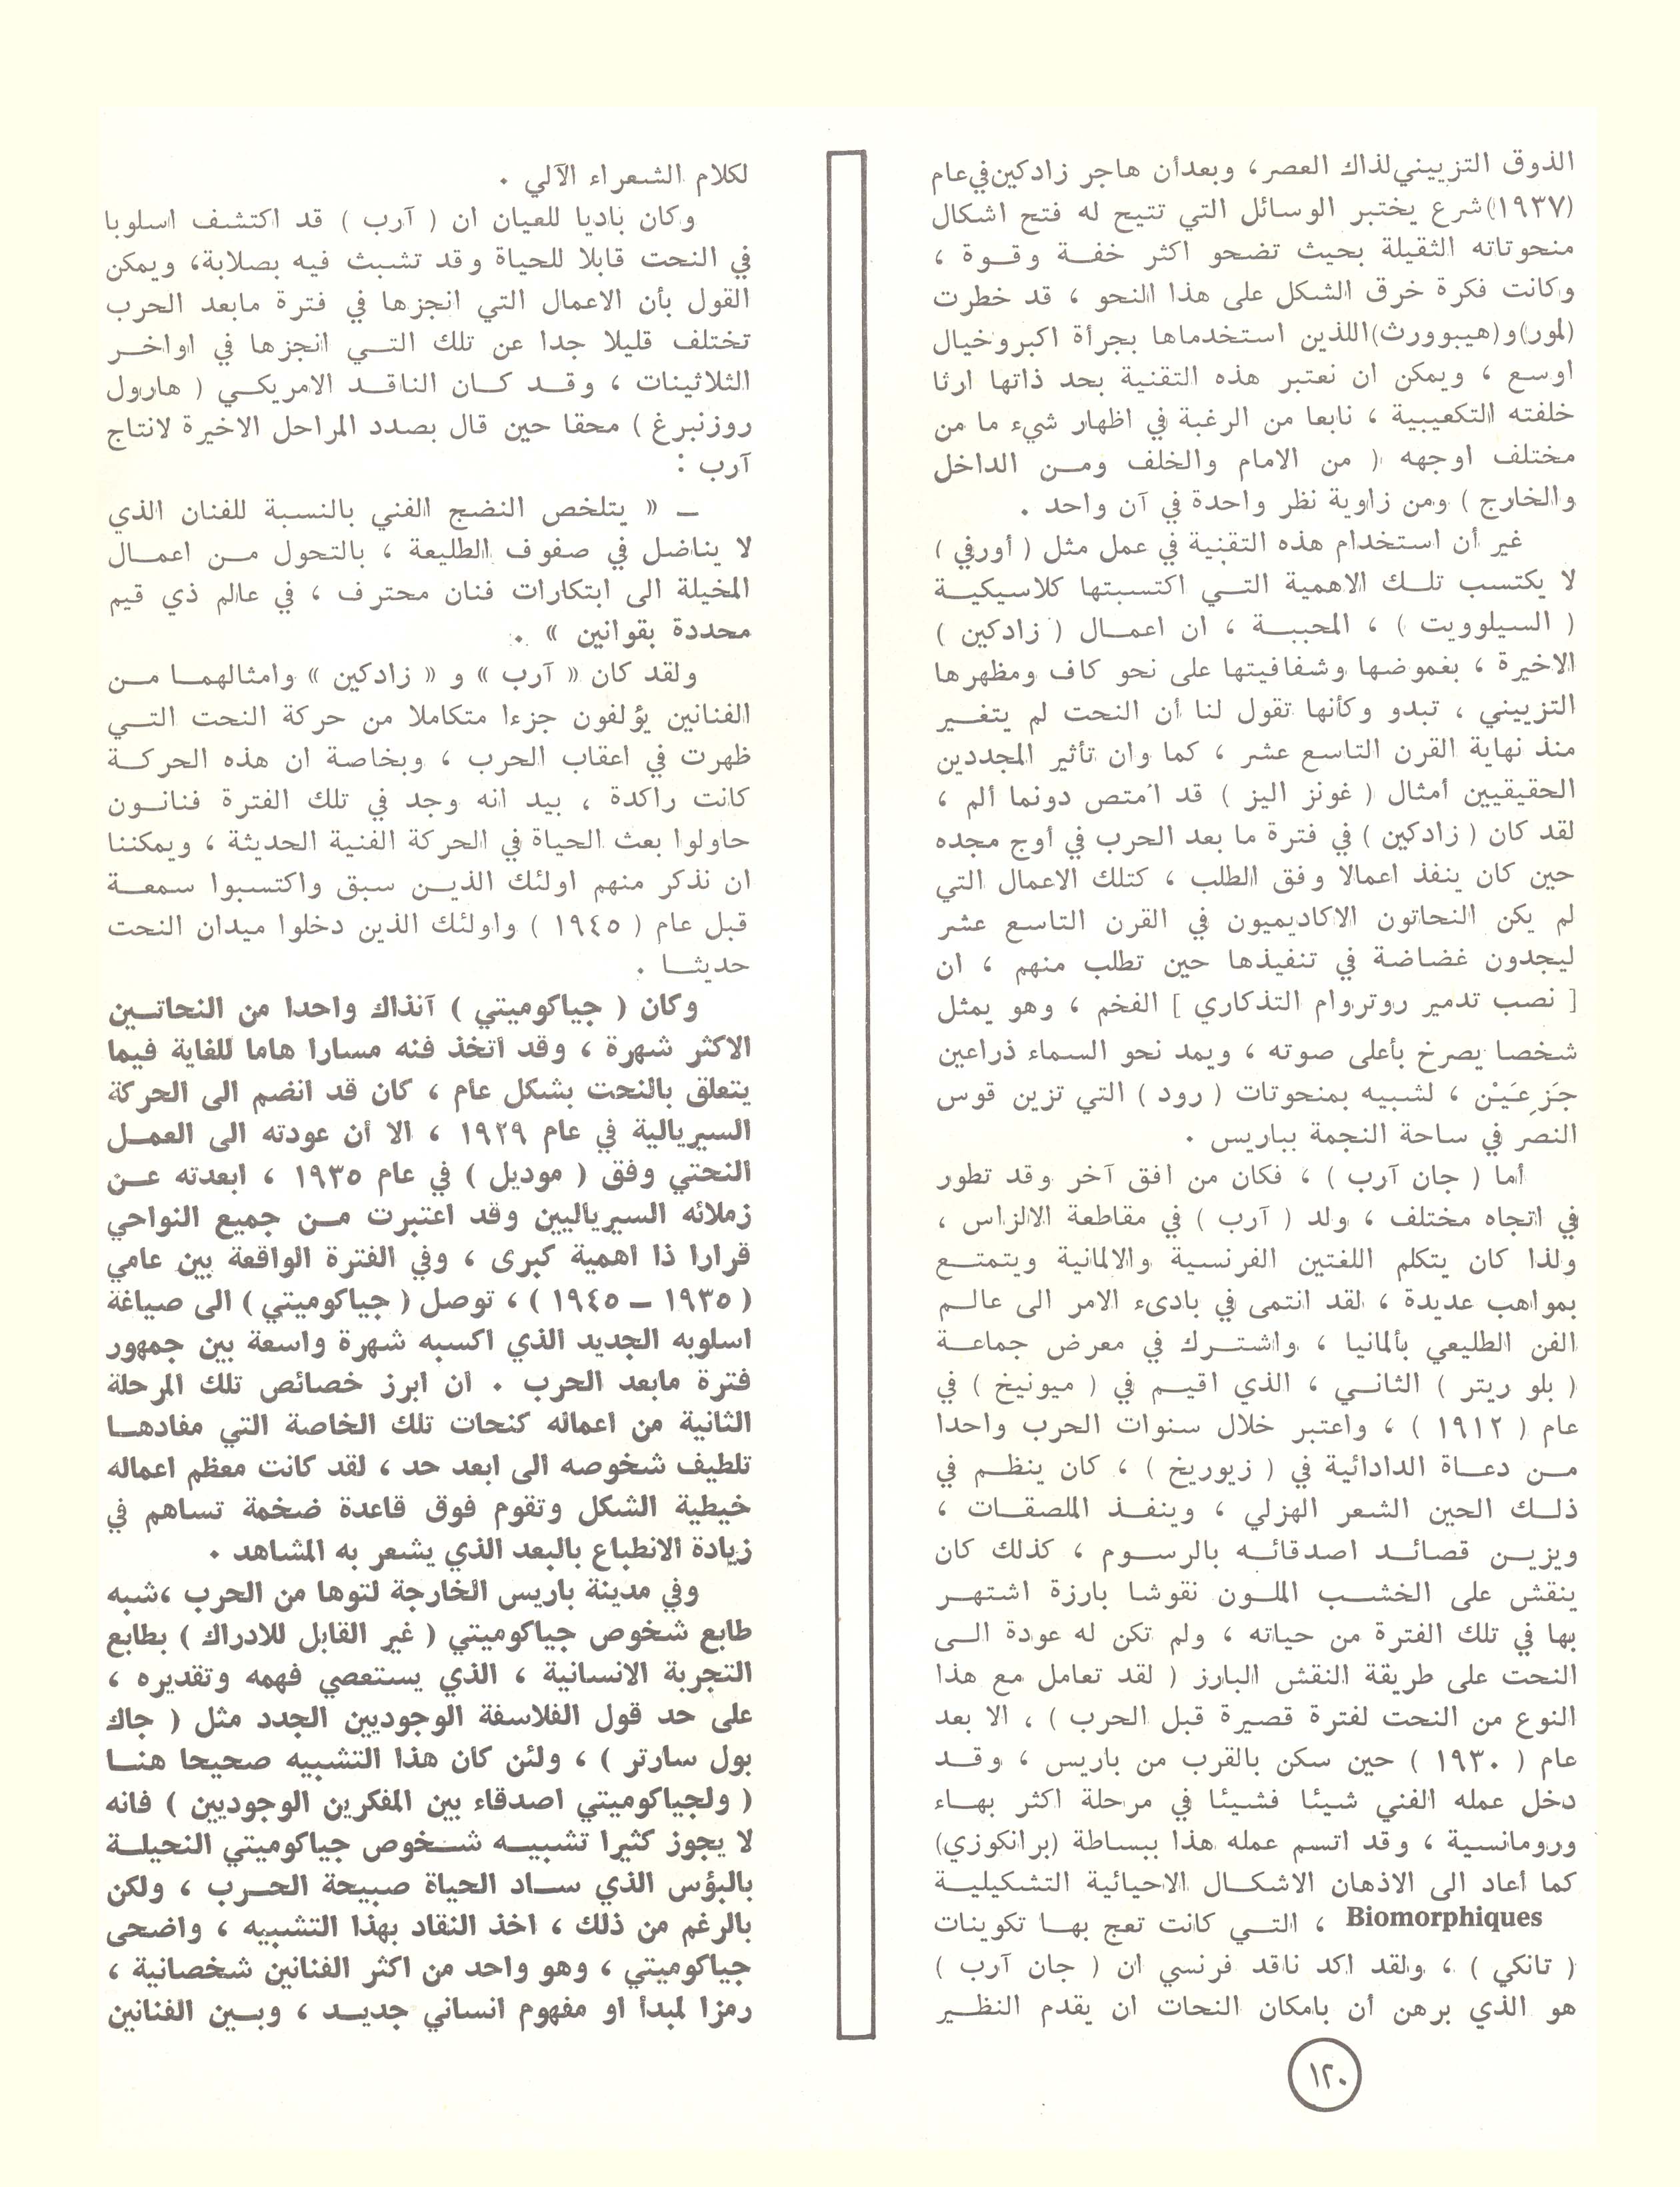 الذوق التزييني لذاك العصر، وبعدأن هاجر زادكين في عام
(١٩٣٧) شرع يختبر الوسائل التي تتيح له فتح اشكال
منحوتاته الثقيلة بحيث تضحو اكثر خفــة وقــوة ،
وكانت فكرة خرق الشكل على هذا النحو ، قد خطرت
(لمور) و(هيبوورث) اللذين استخدماها بجرأة اكبر وخيال
اوسع ، ويمكن ان نعتبر هذه التقنية بحد ذاتها ارثا
خلفته التكعيبية ، نابعا من الرغبة في اظهار شيء ما من
مختلف اوجهه ( من الامام والخلف ومــن الداخل
والخارج ) ومن زاوية نظر واحدة في آن واحد .
غير أن استخدام هذه التقنية في عمل مثل ( أورفي )
لا يكتسب تلــك الاهمية التــي اكتسبتها كلاسيكيــة
( السيلوويت ) ، المحببــة ، ان اعمــال ( زادكين )
الاخيرة ، بغموضها وشفافيتها على نحو كاف ومظهرها
التزييني ، تبدو وكأنها تقول لنا أن النحت لم يتغــير
منذ نهاية القرن التاسع عشر ، كما وان تأثير المجددين
الحقيقيين أمثال ( غونز اليز ) قد امتص دونما ألم ،
لقد كان ( زادكين ) في فترة ما بعد الحرب في أوج مجده
حين كان ينفذ اعمالا وفق الطلب ، كتلك الاعمال التي
لم يكن النحاتون الاكاديميون في القرن التاسع عشر
ليجدون غضاضة في تنفيذها حين تطلب منهم ، ان
[ نصب تدمير روتروام التذكاري ] الفخم ، وهو يمثل
شخصا يصرخ بأعلى صوته ، ويمد نحو السماء ذراعين
جَزِعَيْن ، لشبيه بمنحوتات ( رود ) التي تزين قوس
النصر في ساحة النجمة بباريس .
أما ( جان آرب ) ، فكان من افق آخر وقد تطور
في اتجاه مختلف ، ولد ( آرب ) في مقاطعة الالزاس ،
ولذا كان يتكلم اللغتين الفرنسية والالمانية ويتمتــع
بمواهب عديدة ، لقد انتمى في بادىء الامر الى عالــم
الفن الطليعي بألمانيا ، واشتــرك في معرض جماعــة
( بلو ريتر ) الثانــي ، الذي اقيــم في ( ميونيخ ) في
عام ( ١٩١٢ ) ، واعتبر خلال سنوات الحرب واحدا
مــن دعــاة الدادائية في ( زيوريخ ) ، كان ينظــم في
ذلــك الحين الشعر الهزلي ، وينفــذ الملصقــات ،
ويزيــن قصائــد اصدقائــه بالرســوم ، كذلك كان
ينقش على الخشــب الملــون نقوشا بارزة اشتهــر
بها في تلك الفترة من حياته ، ولم تكن له عودة الــى
النحت على طريقة النقش البارز ( لقد تعامل مع هذا
النوع من النحت لفترة قصيرة قبل الحرب ) ، الا بعد
عام ( ١٩٣٠ ) حين سكن بالقرب من باريس ، وقــد
دخل عمله الفني شيئا فشيئا في مرحلة اكثر بهــاء
ورومانسية ، وقد اتسم عمله هذا ببساطة (برانكوزي)
كما أعاد الى الاذهان الاشكــال الاحيائية التشكيليــة
Biomorphiques ، التــي كانت تعج بهــا تكوينات
( تانكي ) ، ولقد اكد ناقد فرنسي ان ( جان آرب )
هو الذي برهن أن بامكان النحات ان يقدم النظــير
لكلام الشعراء الآلي .
وكان باديا للعيان ان ( آرب ) قد اكتشف اسلوبا
في النحت قابلا للحياة وقد تشبث فيه بصلابة، ويمكن
القول بأن الاعمال التي انجزها في فترة مابعد الحرب
تختلف قليلا جدا عن تلك التــي انجزها في اواخــر
الثلاثينات ، وقــد كــان الناقــد الامريكــي ( هارول
روزنبرغ ) محقا حين قال بصدد المراحل الاخيرة لانتاج
آرب :
ــ « يتلخص النضج الفني بالنسبة للفنان الذي
لا يناضل في صفوف الطليعة ، بالتحول مــن اعمــال
المخيلة الى ابتكارات فنان محترف ، في عالم ذي قيم
محددة بقوانين » .
ولقد كان « آرب » و « زادكين » وامثالهمــا مــن
الفنانين يؤلفون جزءا متكاملا من حركة النحت التــي
ظهرت في اعقاب الحرب ، وبخاصة ان هذه الحركــة
كانت راكدة ، بيد انه وجد في تلك الفترة فنانــون
حاولوا بعث الحياة في الحركة الفنية الحديثة ، ويمكننا
ان نذكر منهم اولئك الذيــن سبق واكتسبوا سمعــة
قبل عام ( ١٩٤٥ ) واولئك الذين دخلوا ميدان النحت
حديثــا .
وكان ( جياكوميتي ) آنذاك واحدا من النحاتــين
الاكثر شهرة ، وقد أتخذ فنه مسارا هاما للغاية فيما
يتعلق بالنحت بشكل عام ، كان قد انضم الى الحركة
السيريالية في عام ١٩٢٩ ، الا أن عودته الى العمــل
النحتي وفق ( موديل ) في عام ١٩٣٥ ، ابعدته عــن
زملائه السيرياليين وقد اعتبرت مــن جميع النواحي
قرارا ذا اهمية كبرى ، وفي الفترة الواقعة بين عامي
( ١٩٣٥ ــ ١٩٤٥ ) ، توصل ( جياكوميتي ) الى صياغة
اسلوبه الجديد الذي اكسبه شهرة واسعة بين جمهور
فترة مابعد الحرب . ان ابرز خصائص تلك المرحلة
الثانية من اعماله كنحات تلك الخاصة التي مفادهــا
تلطيف شخوصه الى ابعد حد ، لقد كانت معظم اعماله
خيطية الشكل وتقوم فوق قاعدة ضخمة تساهم في
زيادة الانطباع بالبعد الذي يشعر به المشاهد .
وفي مدينة باريس الخارجة لتوها من الحرب ،شبه
طابع شخوص جياكوميتي ( غير القابل للادراك ) بطابع
التجربة الانسانية ، الذي يستعصي فهمه وتقديره ،
على حد قول الفلاسفة الوجوديين الجدد مثل ( جاك
بول سارتر ) ، ولئن كان هذا التشبيه صحيحا هنــا
( ولجياكوميتي اصدقاء بين المفكرين الوجوديين ) فانه
لا يجوز كثيرا تشبيــه شــخوص جياكوميتي النحيلــة
بالبؤس الذي ســاد الحياة صبيحة الحــرب ، ولكن
بالرغم من ذلك ، اخذ النقاد بهذا التشبيه ، واضحى
جياكوميتي ، وهو واحد من اكثر الفنانين شخصانية ،
رمزا لمبدأ او مفهوم انساني جديــد ، وبــين الفنانين
١٢٠